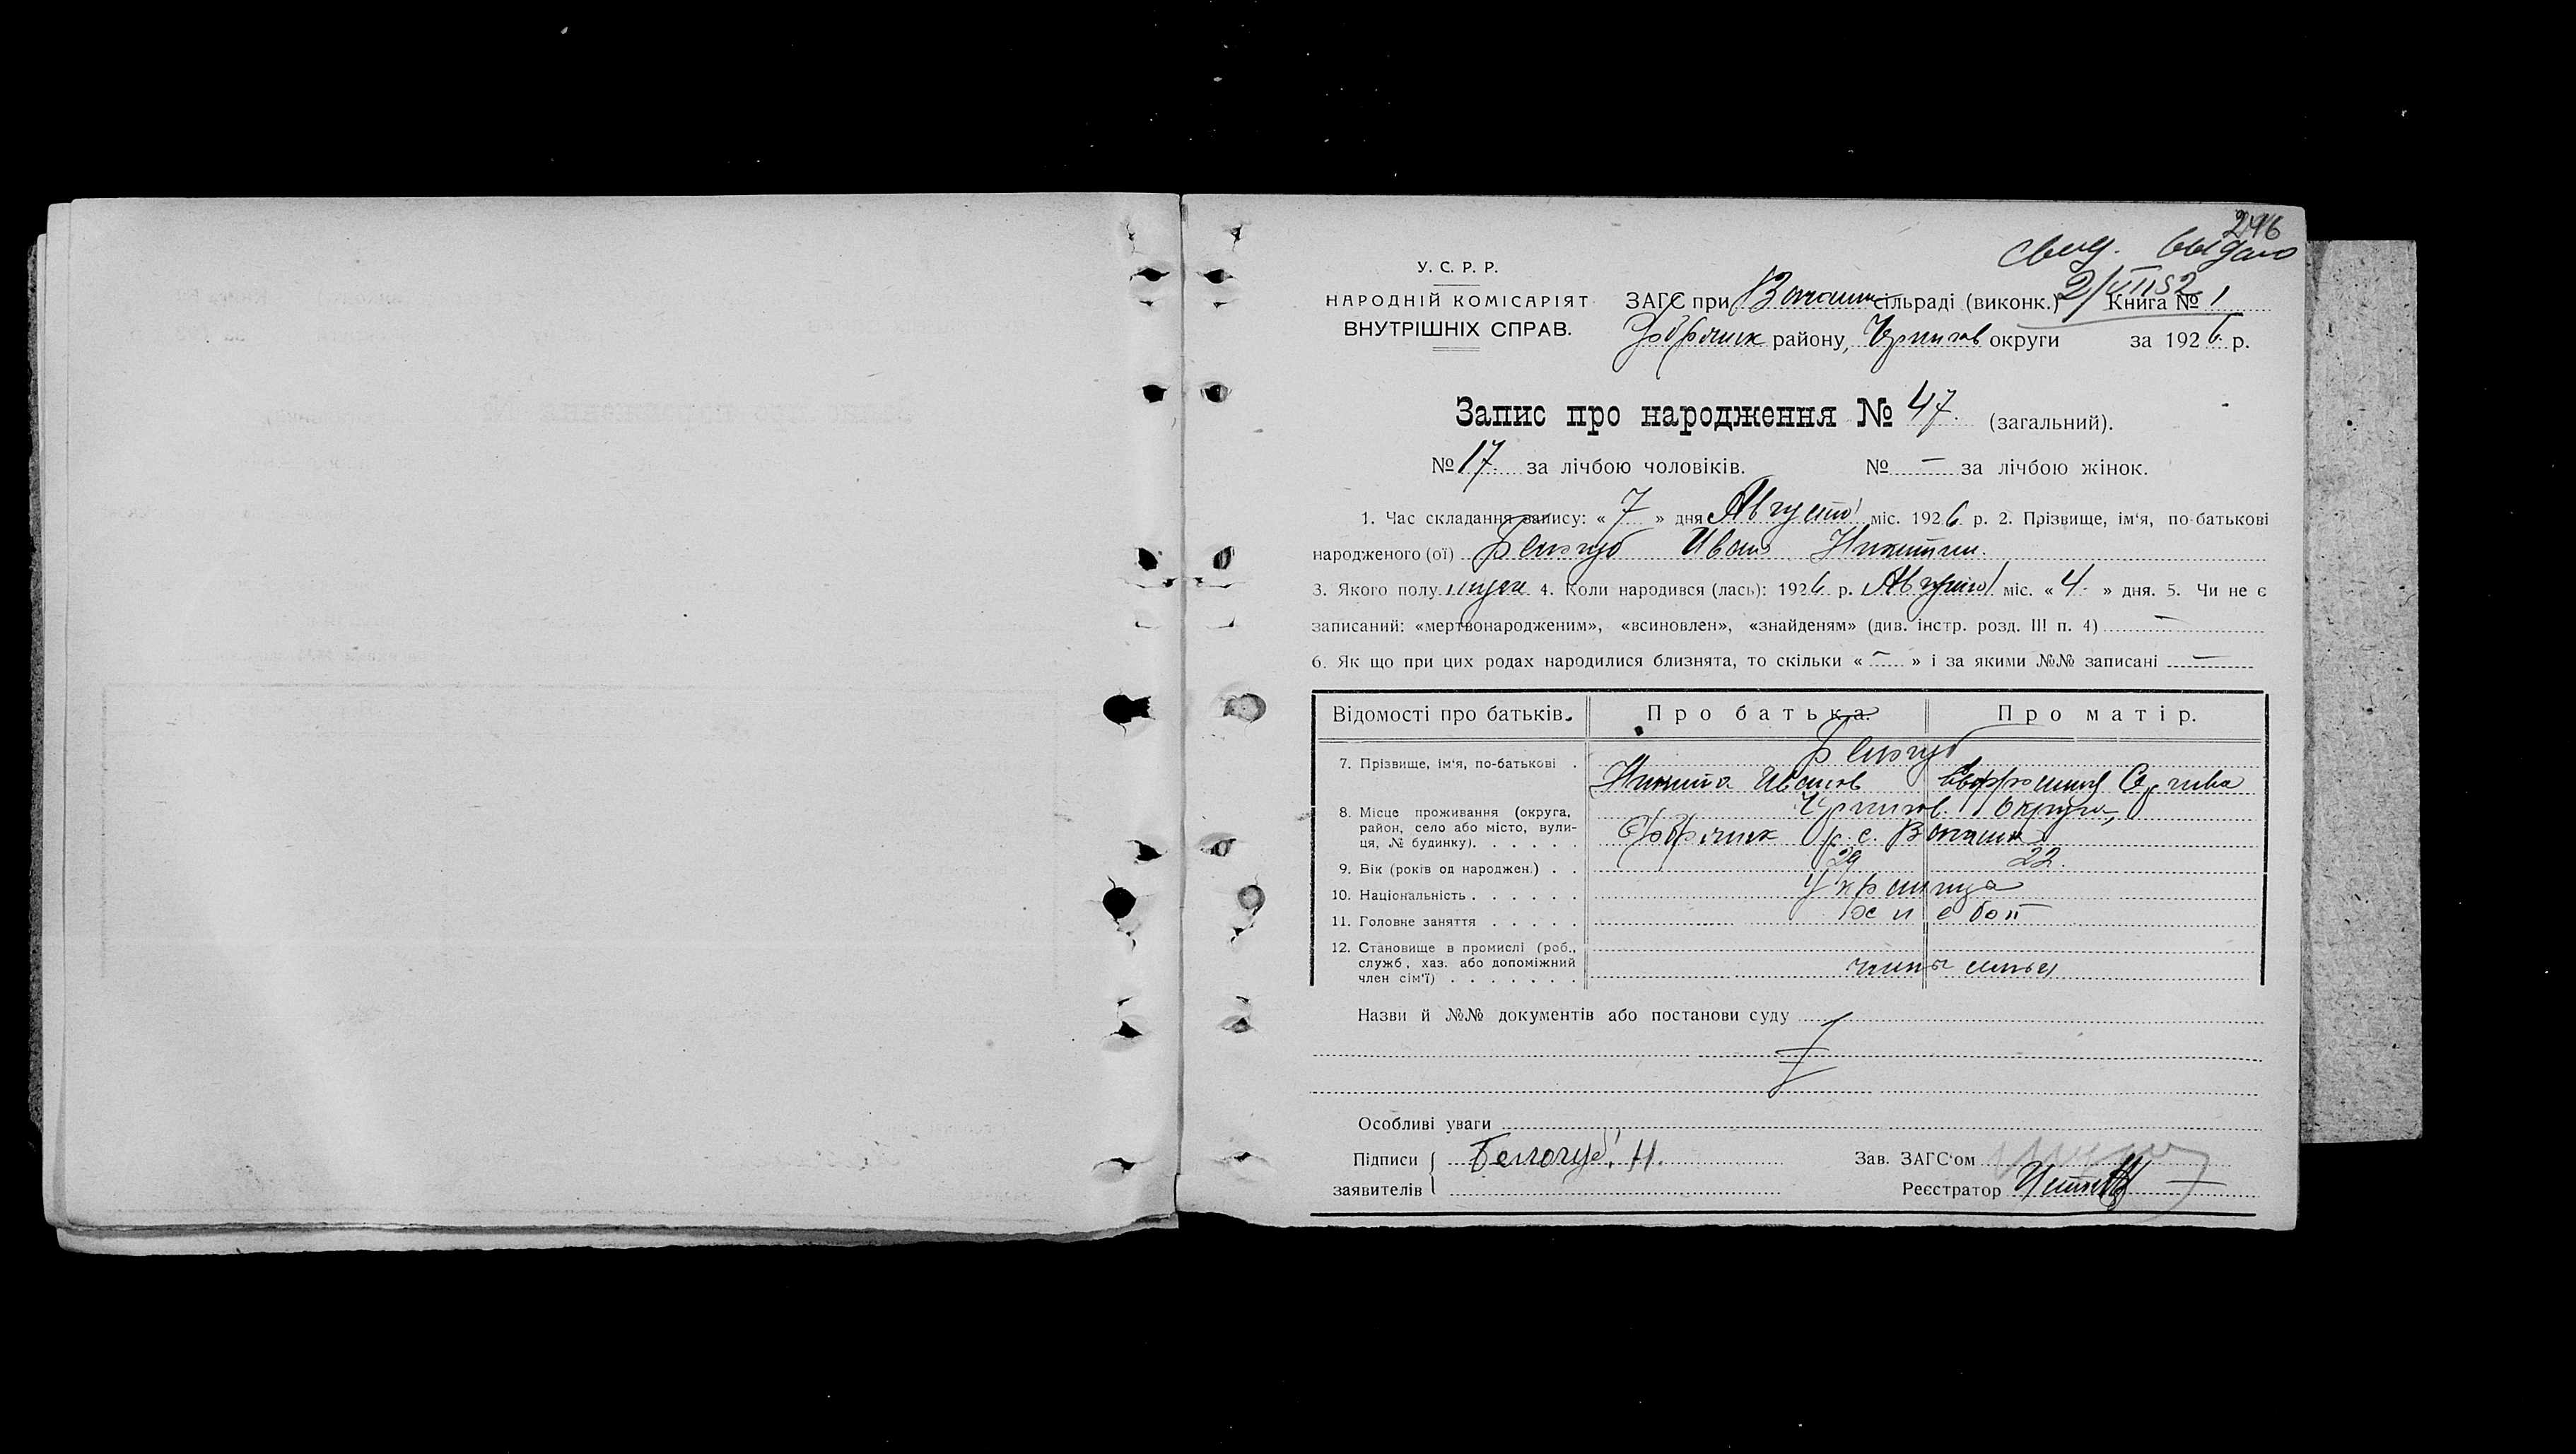 246
свид. выдано
2/VIII 52
У. С. Р. Р.
НАРОДНІЙ КОМІСАРІЯТ
ВНУТРІШНІХ СПРАВ.
ЗАГС при сільраді (виконк.) Книга № 1
району, Чернигов округи за 1926 р.
Запис про народження № 47. (загальний).
№ 17 за лічбою чоловіків. № — за лічбою жінок.
1. Час складання запису: « 7 » дня Августа міс. 1926 р. 2. Прізвище, ім'я, по-батькові
народженого (ої) Белогуб Иван Никитин.
3. Якого полу муж 4. Коли народився (лась): 1926 р. Августа міс. « 4 » дня. 5. Чи не є
записаний: «мертвонародженим», «всиновлен», «знайденям» (див. інстр. розд. III п. 4) —
6. Як що при цих родах народилися близнята, то скільки « — » і за якими №№ записані —
Відомості про батьків. Про батька. Про матір.
7. Прізвище, ім'я, по-батькові . Белогуб
Никита Иванов Евфросиния Сергиева
8. Місце проживання (округа, Чернигов. Округа,
район, село або місто, вули-
ця, № будинку). . . . . . р. с.
9. Вік (років од народжен.) . . 29 22.
10. Національність . . . . . . Украинца
11. Головне заняття . . . . . хлебоп
12. Становище в промислі (роб.,
служб, хаз. або допоміжний
член сім'ї) . . . . . . . члены семьи
Назви й №№ документів або постанови суду
Особливі уваги
Підписи Белогуб. Н. Зав. ЗАГС'ом
заявителів Реєстратор